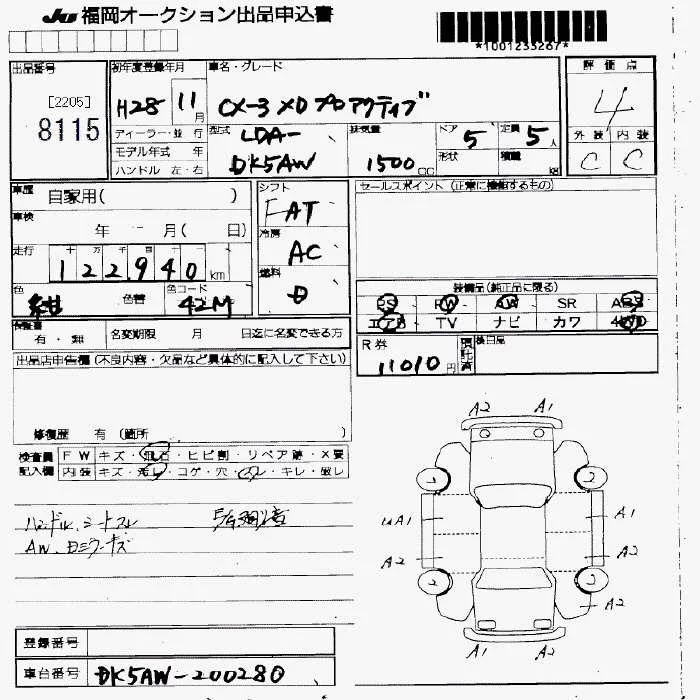 JU 福岡オークション出品申込書
*1001233267*
出品番号
[2205]
8115
初年度登録年月
H28 11月
車名・グレード
CX-3 XD プロアクティブ
評価点
4
外装 内装
C C
ディーラー・並 行
モデル年式 年
ハンドル 左・右
型式
LDA-
DK5AW
排気量
1500cc
ドア 5
形状
定員 5人
積載 kg
車歴 自家用( )
車検
年 月( 日)
走行
十 万 千 百 十
122940km
色 紺
色替
色コード 42M
シフト
FAT
冷房
AC
燃料
D
セールスポイント (正常に機能するもの)
装備品(純正品に限る)
PS PW AW SR ABS
エアB TV ナビ カワ 4WD
保証書
有・無
名変期限 月 日迄に名変できる方
R券
11010円
預託済
検日品
出品店申告欄(不良内容・欠品など具体的に記入して下さい)
修復歴 有 (箇所 )
検査員
記入欄
FW キズ・飛石・ヒビ割・リペア跡・X要
内装 キズ・汚レ・コゲ・穴・スレ・キレ・破レ
ハンドル、シートスレ
AW、ロミラーキズ
A2 A1
A1
A1
A2
A2
A2
A1 A2
2 2 2 2
登録番号
車台番号 DK5AW-200280